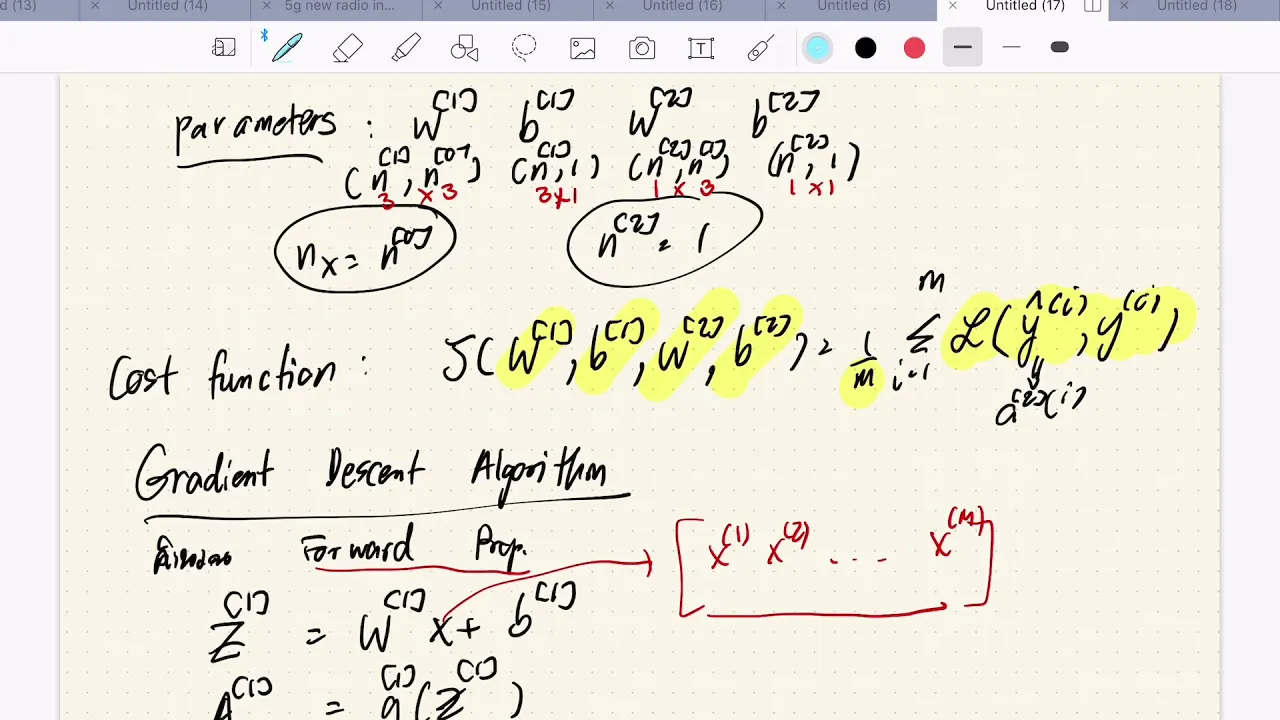 d (13) Untitled (14) 5g new radio in... Untitled (15) Untitled (16) Untitled (6) Untitled (17) Untitled (18)
parameters : W^[1] b^[1] W^[2] b^[2]
(n^[1], n^[0]) (n^[1], 1) (n^[2], n^[1]) (n^[2], 1)
3 x 3 3x1 1 x 3 1 x 1
n_x = n^[0] n^[2] = 1
Cost function : J(W^[1], b^[1], W^[2], b^[2]) = 1/m Σ_{i=1}^{m} L(ŷ^(i), y^(i))
a^[2](i)
Gradient Descent Algorithm
Forward Prop. [x^(1) x^(2) ... x^(m)]
Z^[1] = W^[1] x + b^[1]
A^[1] = g^[1](Z^[1])